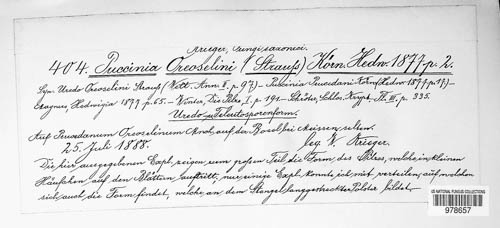 Krieger, fungi saxonici.
404. Puccinia Oreoselini (Strauss) Körn. Hedw. 1877. p. 2.
Syn. Uredo Oreoselini Strauss (Wett. Ann. II. p. 97) – Puccinia Peucedani Körn. (Hedw. 1877. p. 17) –
Magnus, Hedwigia 1877 p. 65. – Winter, Die Pilze, I. p. 191. – Schröter, Schles. Krypt. Fl. III, p. 335.
Uredo- u. Teleutosporenform.
Auf Peucedanum Oreoselinum Mnch. auf der Bosel bei Meissen, selten.
25. Juli 1888. leg. W. Krieger.
Die hier ausgegebenen Expl. zeigen zum grossen Teil die Form des Pilzes, welche in kleinen
Häufchen auf den Blättern auftritt, nur einige Expl. konnte ich mit verteilen, auf welchen
sich auch die Form findet, welche an dem Stengel langgestreckte Polster bildet.
US NATIONAL FUNGUS COLLECTIONS
978657